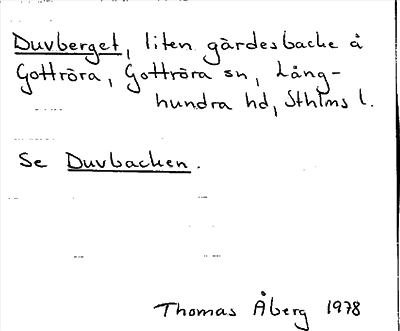 Duvberget, liten gärdesbacke å
Gottröra, Gottröra sn, Lång-
hundra hd, Sthlms l.
Se Duvbacken.
Thomas Åberg 1978